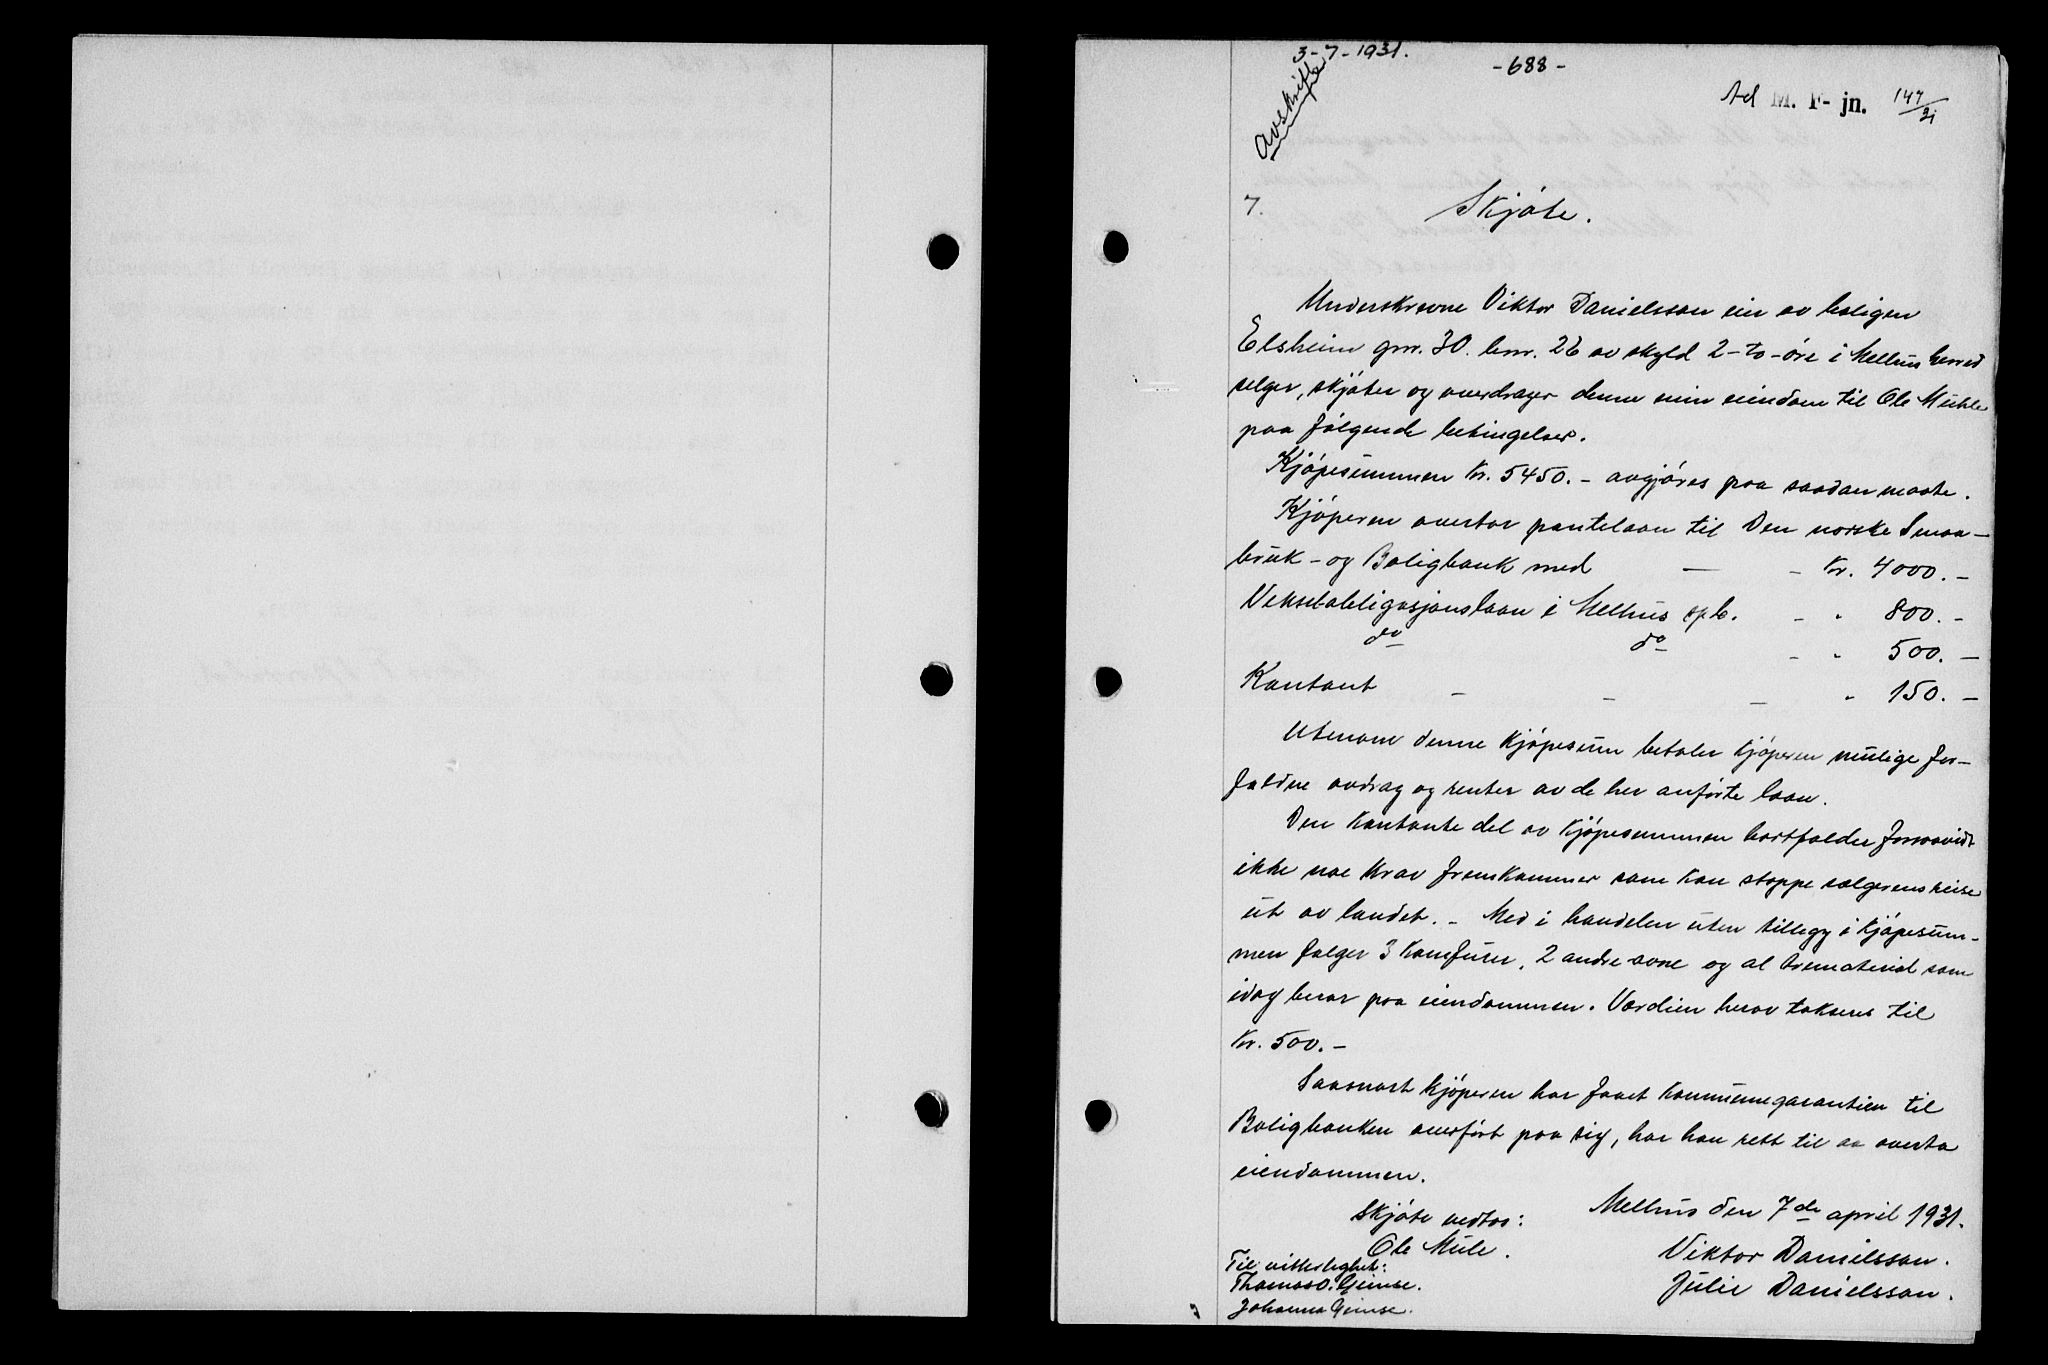 3-7-1931.
-688-
Avskrift
Ad M. F- jn. 147/31
7.
Skjøte.
Underskrevne Viktor Danielsson eier av boligen
Elsheim gnr. 30. bnr. 26 av skyld 2-to-øre i Melhus herred
selger, skjøter og overdrager denne min eiendom til Ole Muhle
paa følgende betingelser.
Kjøpesummen Kr. 5450.- avgjøres paa saadan maate.
Kjøperen overtar pantelaan til Den norske Smaa-
bruk- og Boligbank med — - Kr. 4000.-
Vekselobligasjonslaan i Melhus spb. - " 800.-
do do - " 500.-
Kontant - - - " 150.-
Utenom denne kjøpesum betaler kjøperen mulige for-
faldne avdrag og renter av de her anførte laan.
Den kontante del av kjøpesummen bortfalder forsaavidt
ikke noe krav fremkommer som kan stoppe sælgerens reise
ut av landet. - Med i handelen uten tillegg i kjøpesum-
men følger 3 komfurer, 2 andre ovne og al trematerial som
idag beror paa eiendommen. Værdien herav takseres til
Kr. 500.-
Saasnart kjøperen har faaet kommunegarantien til
Boligbanken overført paa sig, har han rett til aa overta
eiendommen.
Melhus den 7de april 1931.
Skjøte vedtas:
Ole Mule.
Viktor Danielsson.
Julie Danielsson.
Til vitterlighet:
Thomas O. Gimse.
Johanna Gimse.